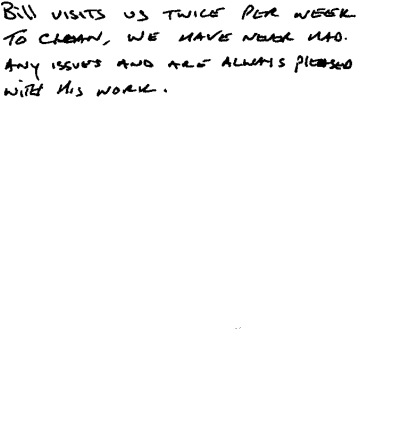 Bill VISITS US TWICE PER WEEK
TO CLEAN, WE HAVE NEVER HAD.
ANY ISSUES AND ARE ALWAYS PLEASED
WITH HIS WORK.